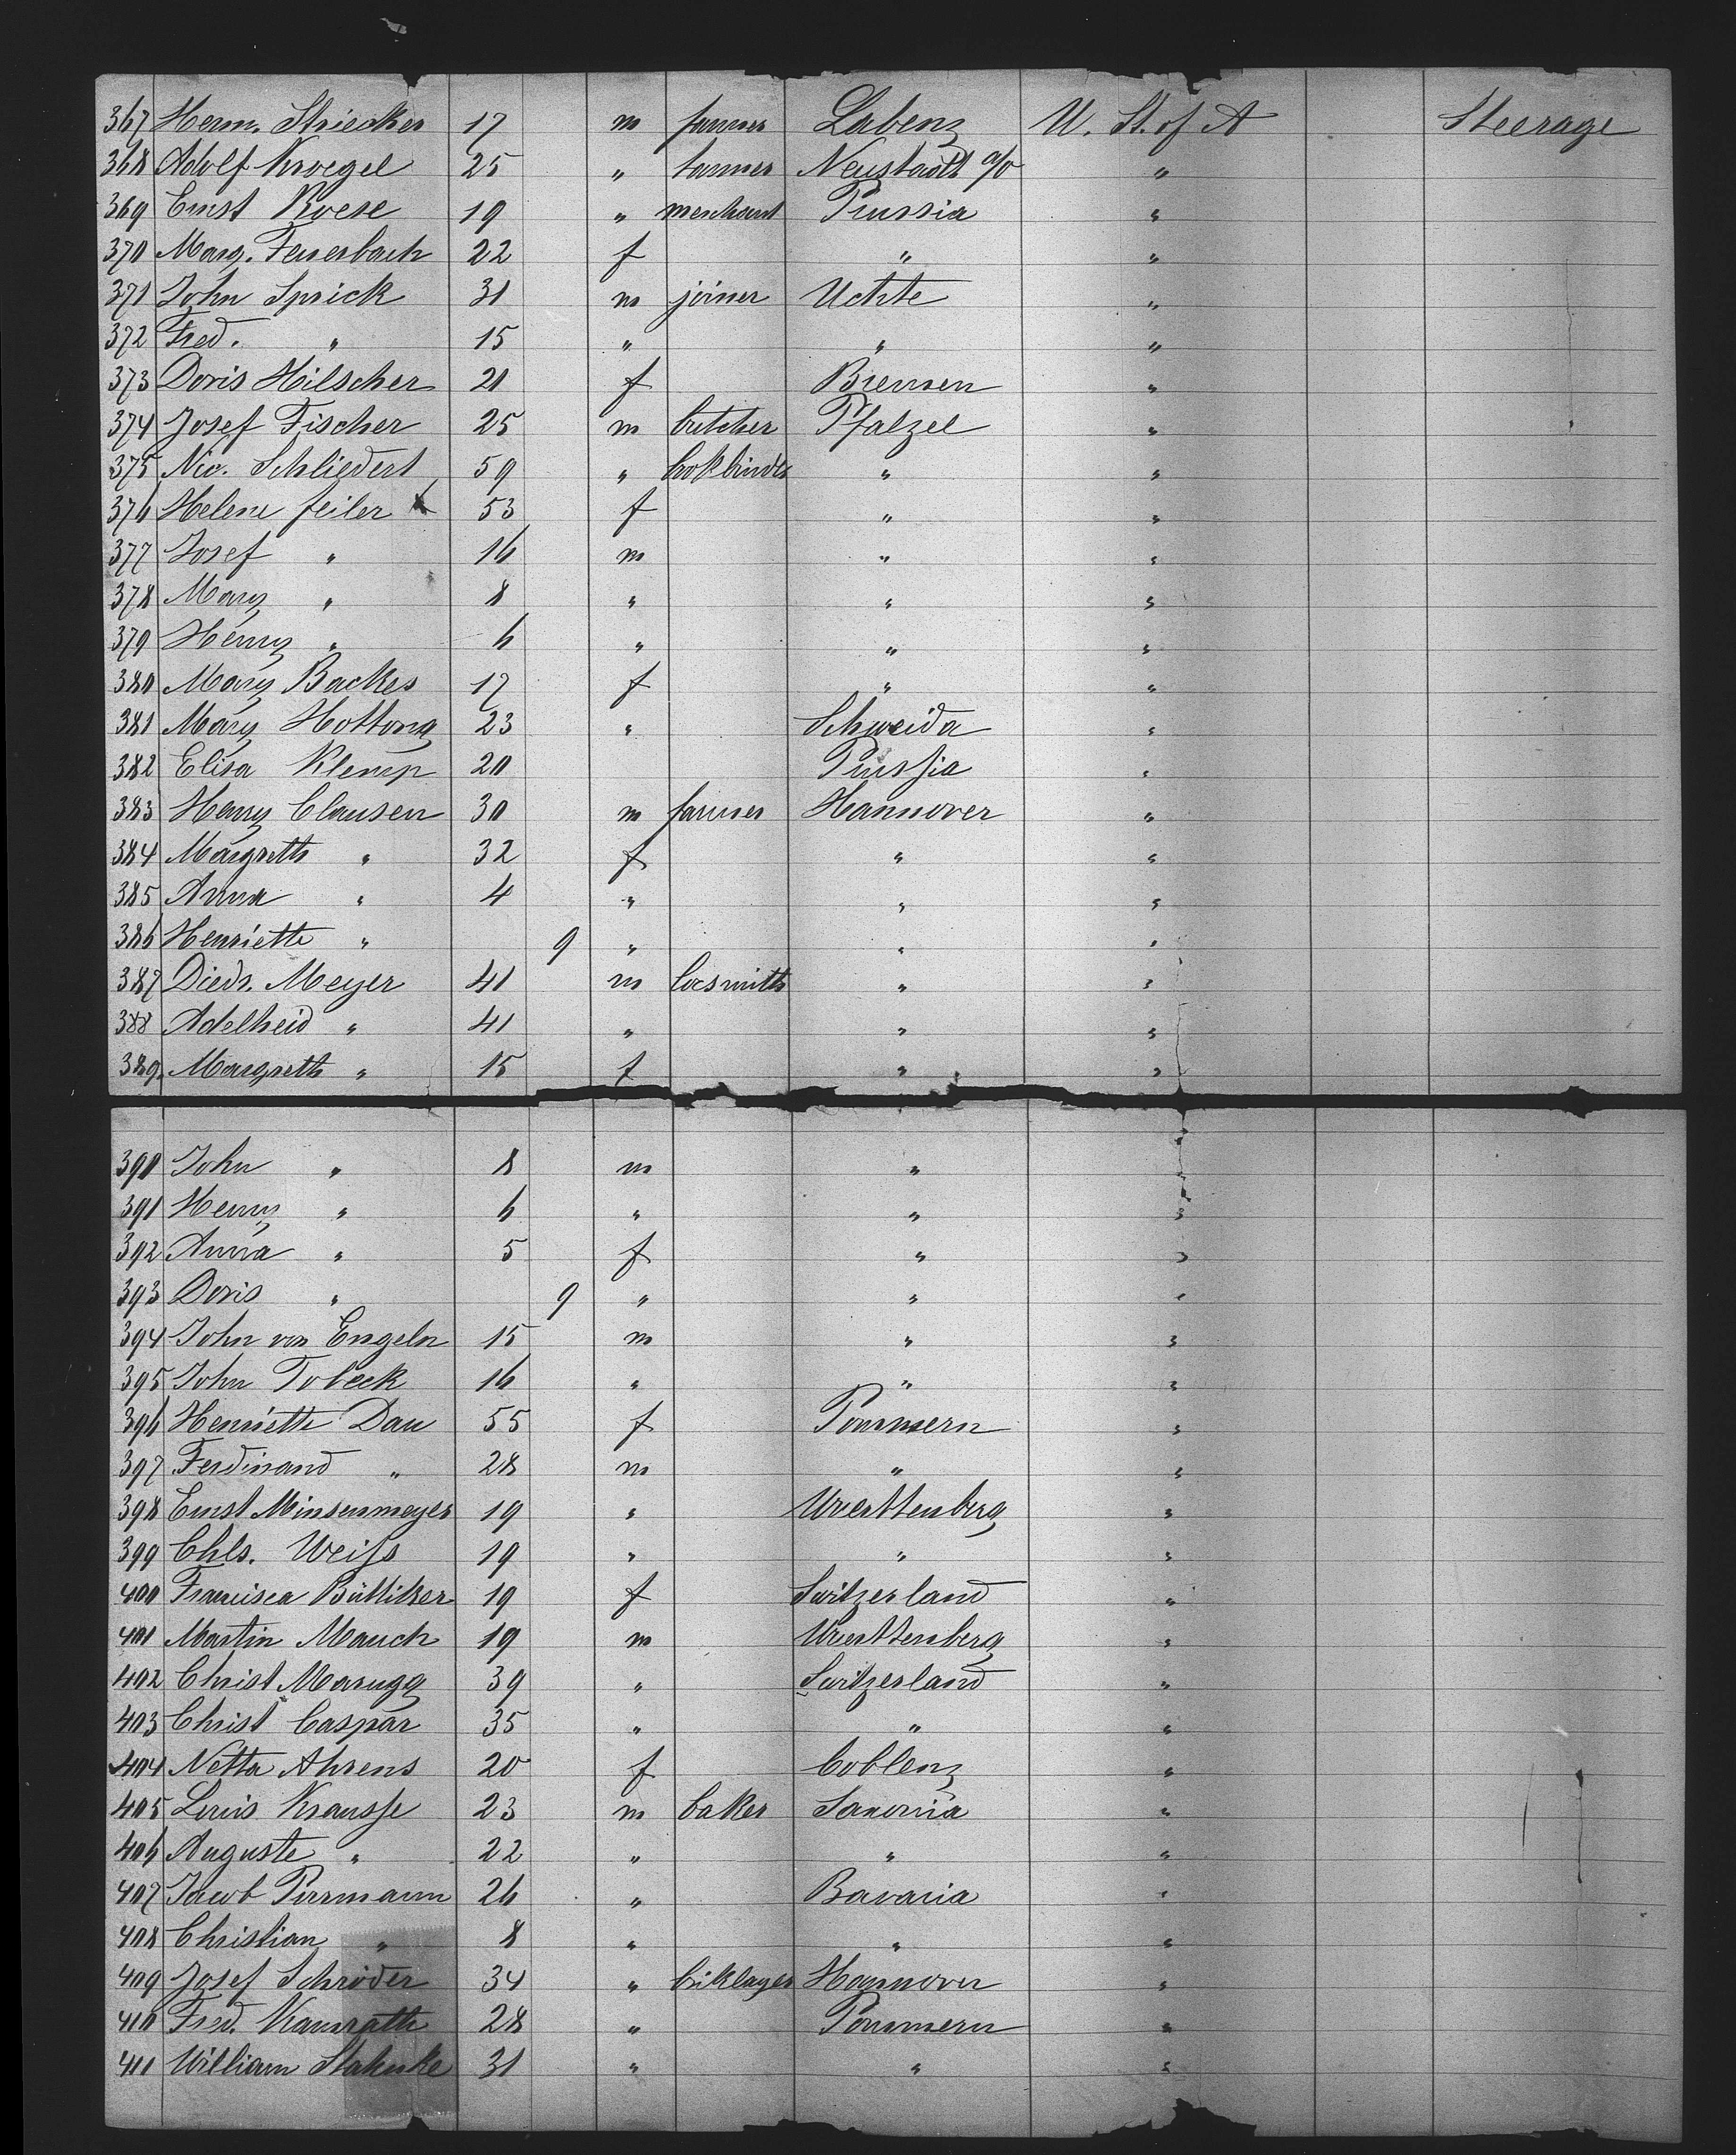 367 Herm. Striecker 17 m farmer Labenz U. St. of A Steerage
368 Adolf Kroegel 25 " tanner Neustadt a/o "
369 Ernst Roese 19 " merchant Prussia "
370 Marg. Feuerbach 22 f " "
371 John Sprick 31 m joiner Uchte "
372 Fred. " 15 " " "
373 Doris Hilscher 21 f Bremen "
374 Josef Fischer 25 m butcher Pfalzel "
375 Nic. Schliedert 59 " bokbinder " "
376 Helene feiler 53 f " "
377 Josef " 16 m " "
378 Mary " 8 " " "
379 Henry " 6 " " "
380 Mary Backes 17 f " "
381 Mary Hottong 23 " Schweida "
382 Elisa Klemp 20 Prussia "
383 Harry Clausen 30 m farmer Hannover "
384 Margreth " 32 f " "
385 Anna " 4 " " "
386 Henriette " 9 " " "
387 Diedr. Meyer 41 m locsmith " "
388 Adelheid " 41 " " "
389. Margreth " 15 f " "
390 John " 8 m " "
391 Henry " 6 " " "
392 Anna " 5 f " "
393 Doris " 9 " " "
394 John von Engeln 15 m " "
395 John Tobeck 16 " " "
396 Henriette Dau 55 f Pommern "
397 Ferdinand " 28 m " "
398 Ernst Minsenmeyer 19 " Wuerttenberg "
399 Chls. Weiss 19 " " "
400 Francisca Büttiker 19 f Switzerland "
401 Martin Mauch 19 m Wuerttenberg "
402 Christ Marugg 39 " Switzerland "
403 Christ Caspar 35 " " "
404 Netta Ahrens 20 f Coblenz "
405 Louis Krausse 23 m baker Saxonia "
406 Auguste " 22 " " "
407 Jacob Purmann 26 " Bavaria "
408 Christian " 8 " " "
409 Josef Schröder 34 " briklayer Hannover "
410 Fred. Kamrath 28 " Pommern "
411 William Stahnke 31 " " "